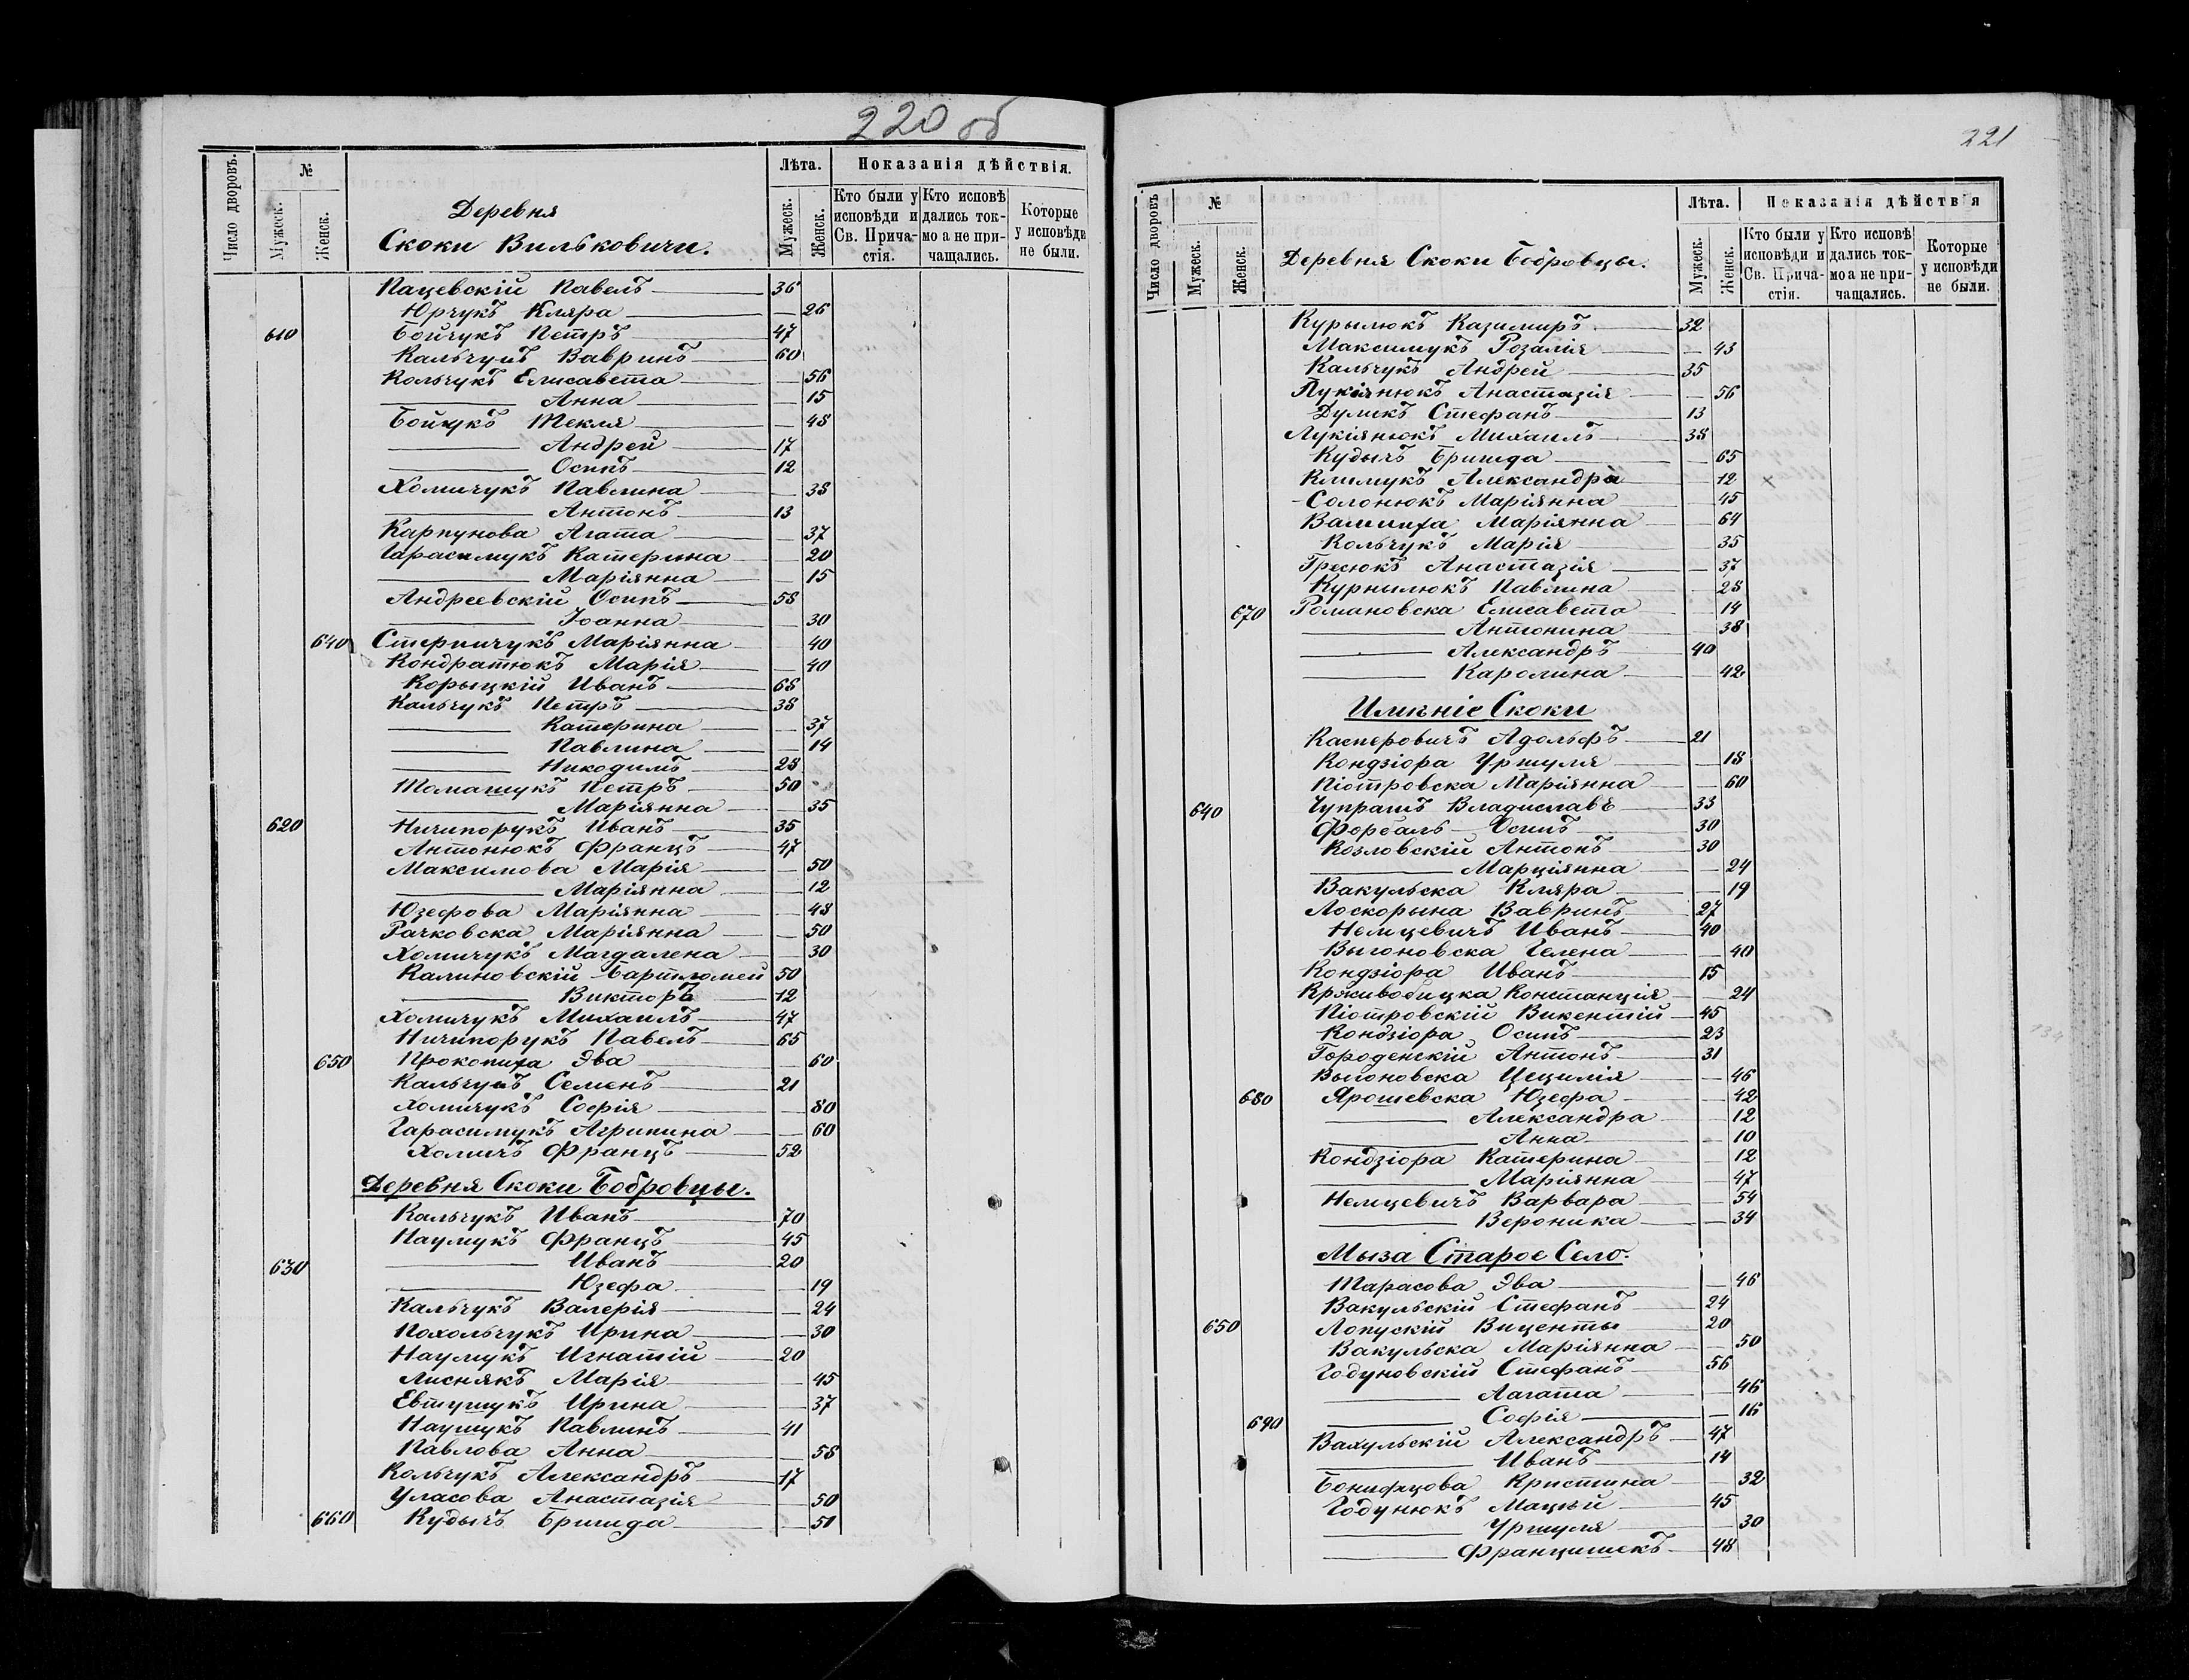 220 об
Число дворовъ.
№
Мужеск.
Женск.
Деревня
Скоки Вильковичи.
Лѣта.
Мужеск.
Женск.
Показанія дѣйствія.
Кто были у исповѣди и Св. Причастія.
Кто исповѣдались токмо а не причащались.
Которые у исповѣди не были.
Пацевскій Павелъ 36
Юрчукъ Кляра — 26
610 Бойчукъ Петръ 47
Кальчукъ Вавринъ 60
Кольчукъ Елисавета — 56
— Анна — 15
Бойчукъ Текля — 48
— Андрей 17
— Осипъ 12
Хомичукъ Павлина — 38
— Антонъ 13
Карпунова Агата — 37
Гарасимукъ Катерина — 20
— Маріянна — 15
Андреевскій Осипъ 58
— Іоанна — 30
640 Стерпичукъ Маріянна — 40
Кондратюкъ Марія — 40
Корыцкій Иванъ 68
Кальчукъ Петръ 38
— Катерина — 37
— Павлина — 14
— Никодимъ 28
Томашукъ Петръ 50
— Маріянна — 35
620 Ничипорукъ Иванъ 35
Антонюкъ Францъ 47
Максимова Марія — 50
— Маріянна — 12
Юзефова Маріянна — 48
Рачковска Маріянна — 50
Хомичукъ Магдалена — 30
Калиновскій Бартломей 50
— Викторъ 12
Хомичукъ Михаилъ 47
Ничипорукъ Павелъ 65
650 Прокопиха Эва — 60
Кальчукъ Семенъ 21
Хомичукъ Софія — 80
Гарасимукъ Агрипина — 60
Хомичъ Францъ 52
Деревня Скоки Бобровцы.
Кальчукъ Иванъ 70
Наумукъ Францъ 45
630 — Иванъ 20
— Юзефа — 19
Кальчукъ Валерія — 24
Похольчукъ Ирина — 30
Наумукъ Игнатій 20
Лиснякъ Марія — 45
Евтушукъ Ирина — 37
Наумукъ Павлинъ 41
Павлова Анна — 58
Кольчукъ Александръ 17
Уласова Анастазія — 50
660 Кудычъ Бригида — 51
221
Число дворовъ
№
Мужеск.
Женск.
Деревня Скоки Бобровцы.
Лѣта.
Мужеск.
Женск.
Показанія дѣйствія
Кто были у исповѣди и Св. Причастія.
Кто исповѣдались токмо а не причащались.
Которые у исповѣди не были.
Курылюкъ Казимиръ 32
Максимукъ Розалія — 43
Кальчукъ Андрей 35
Лукіянюкъ Анастазія — 56
Думикъ Стефанъ 13
Лукіянюкъ Михаилъ 38
Кудычъ Бригида — 65
Климукъ Александра — 12
Солонюкъ Маріянна — 45
Маріянна — 64
Кольчукъ Марія — 35
Гресюкъ Анастазія — 37
Курнылюкъ Павлина — 28
670 Романовска Елисавета — 14
— Антонина — 38
— Александръ 40
— Каролина — 42
Имѣніе Скоки
Касперовичъ Адольфъ 21
Кондзіора Уршуля — 18
Піотровска Маріянна — 60
640 Чупрашъ Владиславъ 33
Форбаль Осипъ 30
Козловскій Антонъ 30
— Марціянна — 24
Вакульска Кляра — 19
Лоскорына Вавринъ 27
Немцевичъ Иванъ 40
Выгоновска Гелена — 40
Кондзіора Иванъ 15
Крживобицка Констанція — 24
Піотровскій Викентій 45
Кондзіора Осипъ 23
Городенскій Антонъ 31
Выгоновска Цецилія — 46
680 Ярошевска Юзефа — 42
— Александра — 12
— Анна — 10
Кондзіора Катерина — 12
— Маріянна — 47
Немцевичъ Варвара — 54
— Вероника — 34
Мыза Старое Село.
Тарасова Эва — 46
Вакульскій Стефанъ 24
650 Лопускій Виценты 20
Вакульска Маріянна — 50
Годуновскій Стефанъ 56
— Агата — 46
690 — Софія — 16
Вакульскій Александръ 47
— Иванъ 14
Бонифацова Кристина — 32
Годунюкъ Мацѣй 45
— Уршуля — 30
— Францишекъ 48